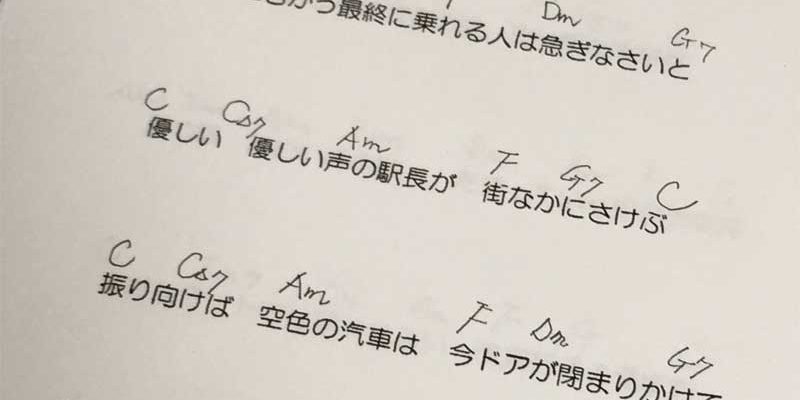 Dm G7
かう最終に乗れる人は急ぎなさいと
C C△7 Am F G7 C
優しい 優しい声の駅長が 街なかにさけぶ
C C△7 Am F Dm G7
振り向けば 空色の汽車は 今ドアが閉まりかけて